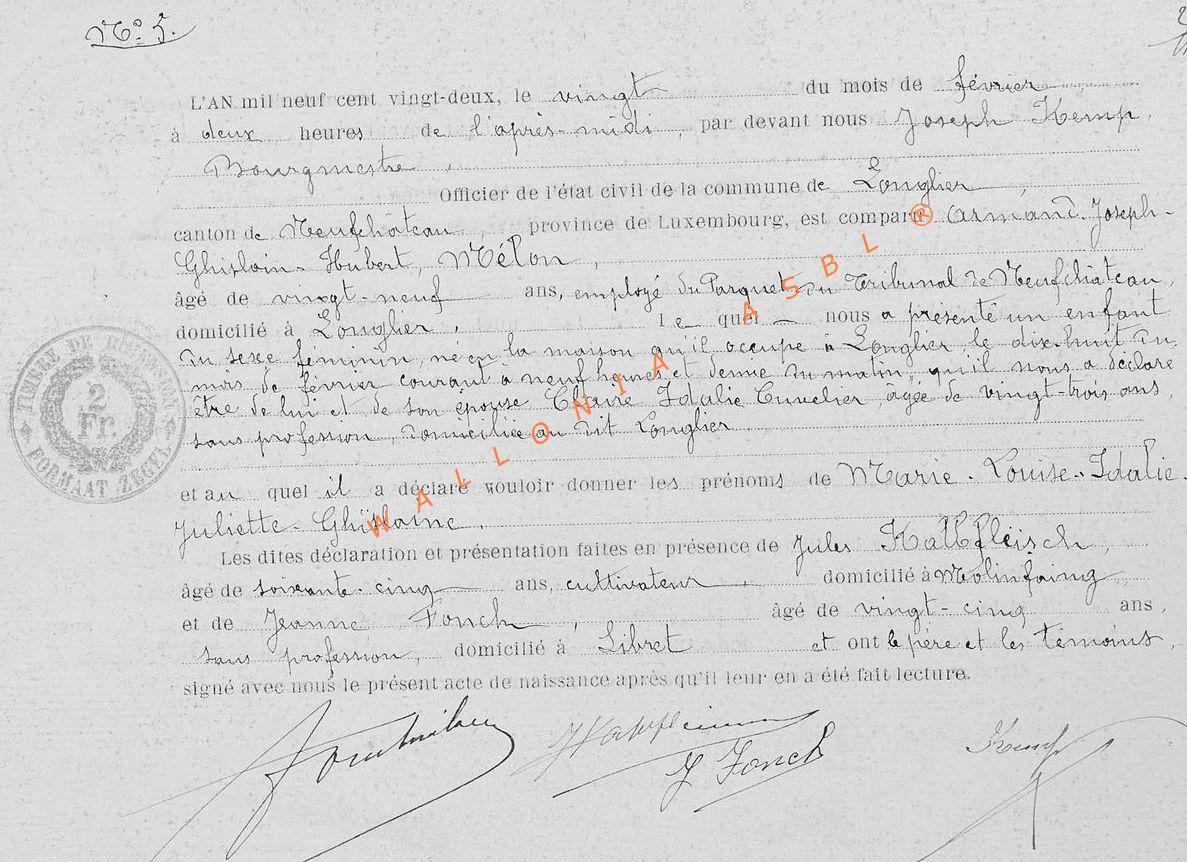 N° 5.
L'AN mil neuf cent vingt-deux, le vingt du mois de février
à deux heures de l'après-midi, par devant nous Joseph Kemp,
Bourgmestre,
Officier de l'état civil de la commune de Longlier,
canton de Neufchâteau, province de Luxembourg, est comparu Armand-Joseph-
Ghislain-Hubert, Mélon,
âgé de vingt-neuf ans, employé du Parquet du Tribunal de Neufchâteau,
domicilié à Longlier, le quel nous a présenté un enfant
du sexe féminin, né en la maison qu'il occupe à Longlier le dix-huit du
mois de février courant à neuf heures et demie du matin, qu'il nous a déclaré
être de lui et de son épouse Marie Idalie Cuvelier, âgée de vingt-trois ans,
sans profession, domiciliée au dit Longlier
et au quel il a déclaré vouloir donner les prénoms de Marie-Louise-Idalie-
Juliette-Ghislaine.
Les dites déclaration et présentation faites en présence de Jules Kalbfleisch,
âgé de soixante-cinq ans, cultivateur, domicilié à Molinfaing,
et de Jeanne Fonch, âgé de vingt-cinq ans,
sans profession, domicilié à Libret et ont le père et les témoins,
signé avec nous le présent acte de naissance après qu'il leur en a été fait lecture.
J Fonch
Kemp
2 Fr.
FORMAAT ZEGEL
WALLONIA ASBL ®